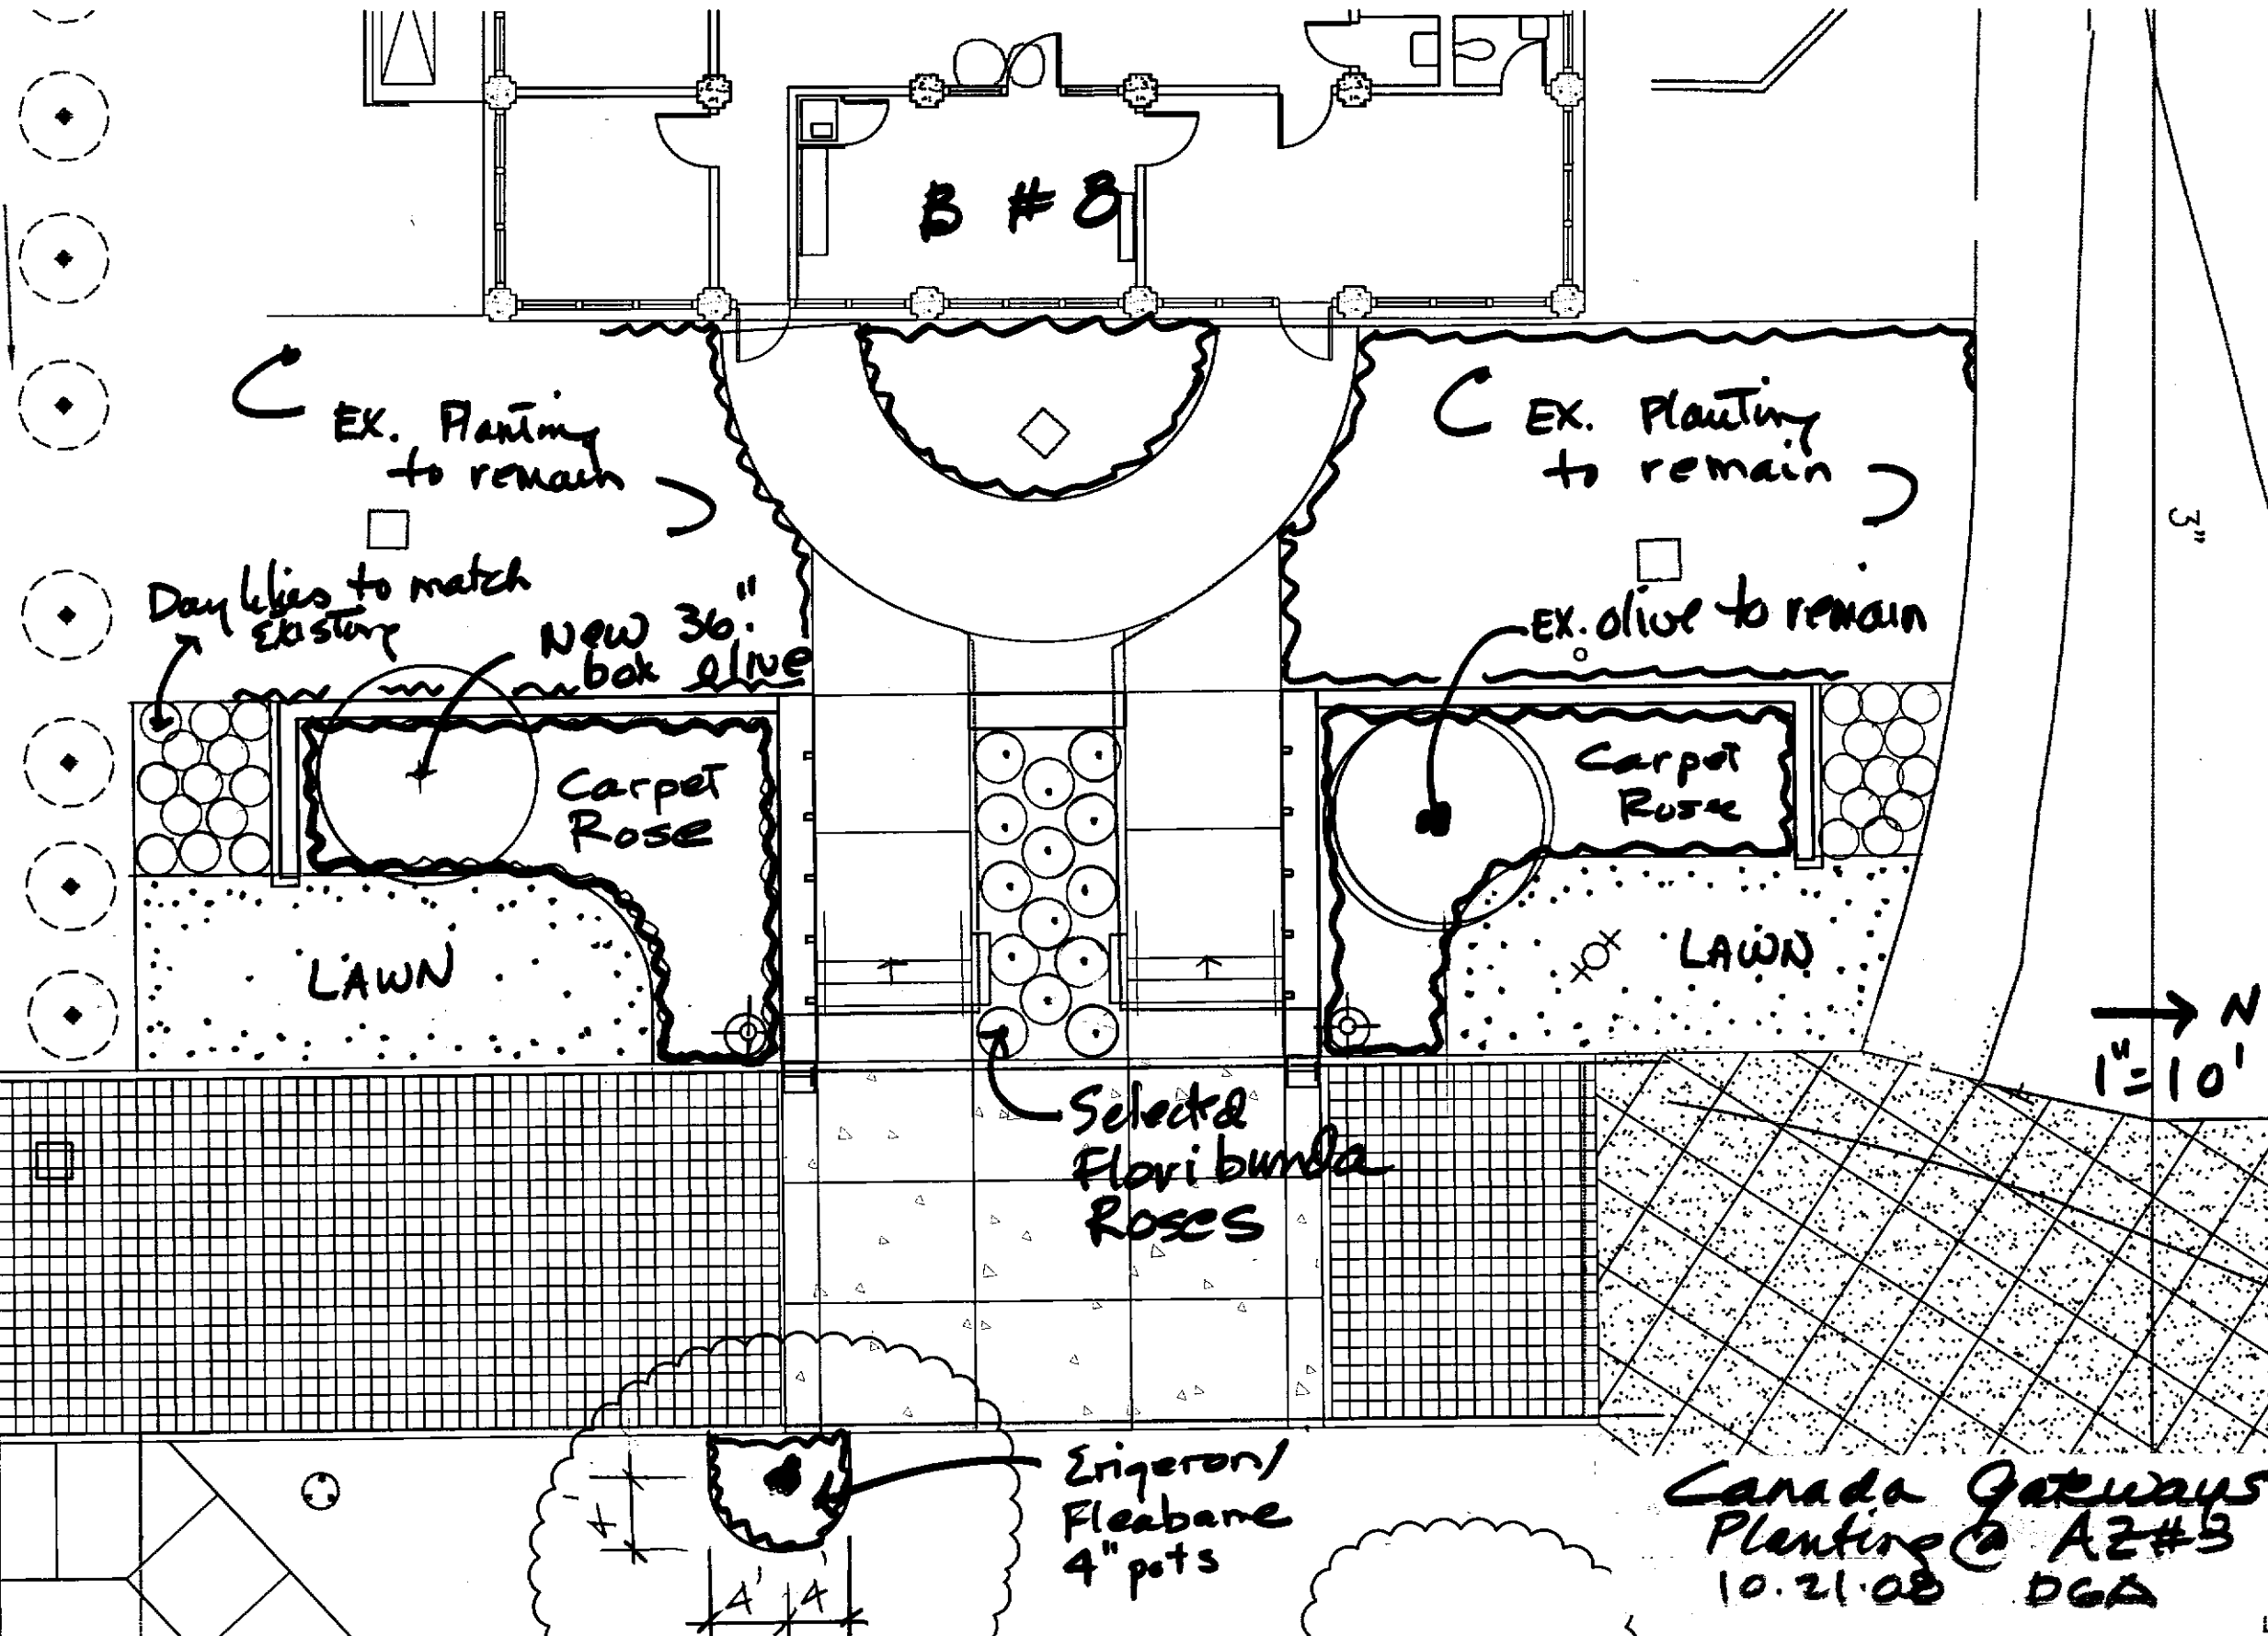 B #8
EX. Planting
to remain
EX. Planting
to remain
3"
Day lilies to match
Existing
New 36"
box olive
EX. olive to remain
Carpet
Rose
Carpet
Rose
LAWN
LAWN
N
1"=10'
Selected
Floribunda
Roses
Erigeron/
Fleabane
4" pots
4'
4' 4'
Canada Gateways
Planting @ AZ#3
10.21.08 DGA